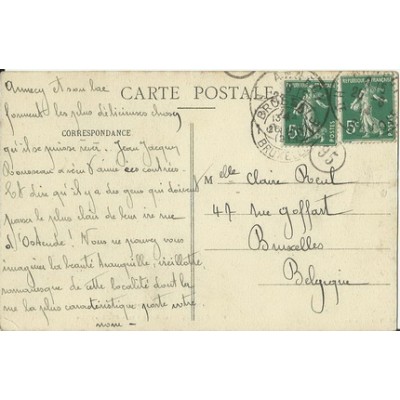 CARTE POSTALE
CORRESPONDANCE
Annecy et son lac
forment les plus délicieuses choses
qu'il se puisse rêvé. Jean Jacques
Rousseau a vécu aimé ces contrées.
Et dire qu'il y a des gens qui doivent
passer le plus clair de leur vie rue
d'Ostende! Vous ne pouvez vous
imaginer la beauté tranquille, vieillotte
romanesque de cette localité dont la
rue la plus caractéristique porte votre
nom -
Melle Claire
47 rue Goffart
Bruxelles
Belgique
REPUBLIQUE FRANÇAISE
5c
POSTES
5c
POSTES